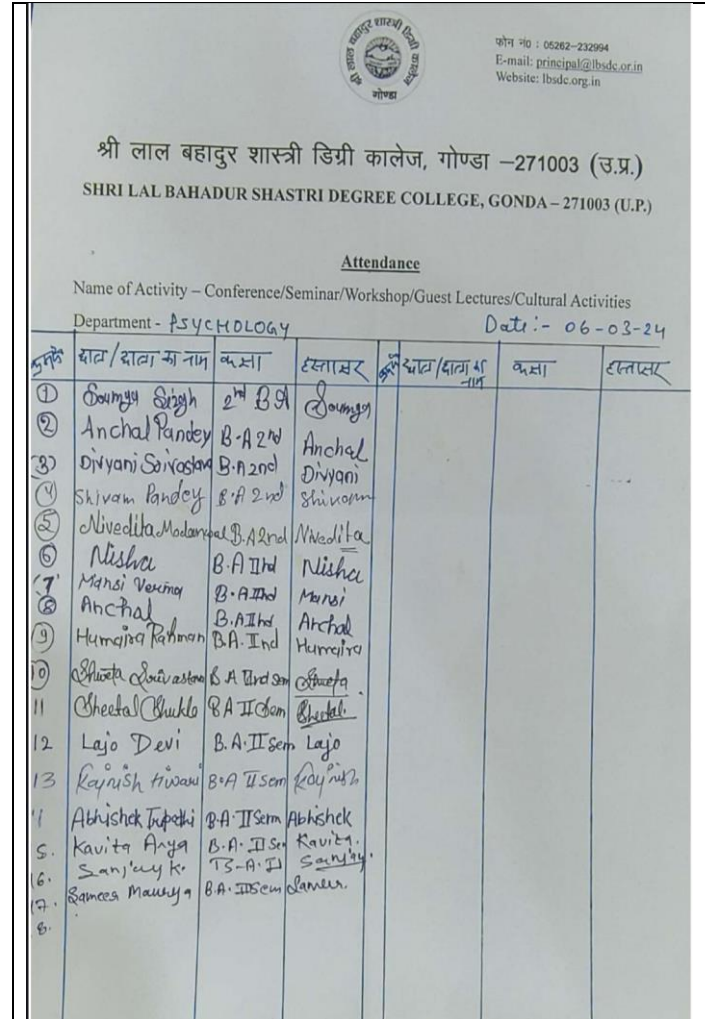 श्री लाल बहादुर शास्त्री डिग्री कालेज
गोण्डा
फोन नं0 : 05262-232994
E-mail: principal@lbsdc.or.in
Website: lbsdc.org.in
श्री लाल बहादुर शास्त्री डिग्री कालेज, गोण्डा –271003 (उ.प्र.)
SHRI LAL BAHADUR SHASTRI DEGREE COLLEGE, GONDA – 271003 (U.P.)
Attendance
Name of Activity – Conference/Seminar/Workshop/Guest Lectures/Cultural Activities
Department - PSYCHOLOGY Date:- 06-03-24
छात्र/छात्रा का नाम कक्षा हस्ताक्षर छात्र/छात्रा का नाम कक्षा हस्ताक्षर
1 Soumya Singh 2nd BA Soumya
2 Anchal Pandey B.A 2nd Anchal
3) Divyani Srivastava B.A 2nd Divyani
4 Shivam Pandey B.A 2nd Shivam
5 Nivedita B.A 2nd Nivedita
6 Nisha B.A IInd Nisha
7 Mansi Verma B.A IInd Mansi
8 Anchal B.A IInd Anchal
9 Humaira Rahman B.A. IInd Humaira
10 Shweta Srivastava B A IInd Sem Shweta
11 Sheetal Shukla B A II Sem
12 Lajo Devi B.A. II Sem Lajo
13 B.A II Sem
Abhishek Tripathi B.A. II Sem Abhishek
5. Kavita Arya B.A. II Sem Kavita.
16. Sanjay K. B-A. II Sanjay.
17. Sameer Maurya B.A. II Sem Sameer.
8.